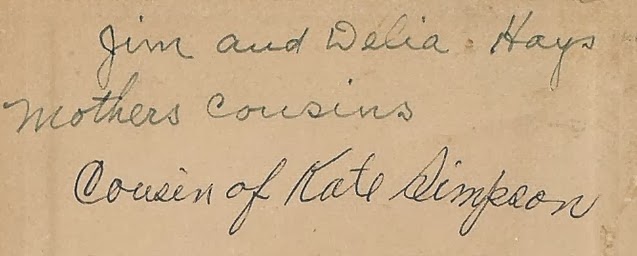 Jim and Delia Hays
Mothers Cousins
Cousin of Kate Simpson